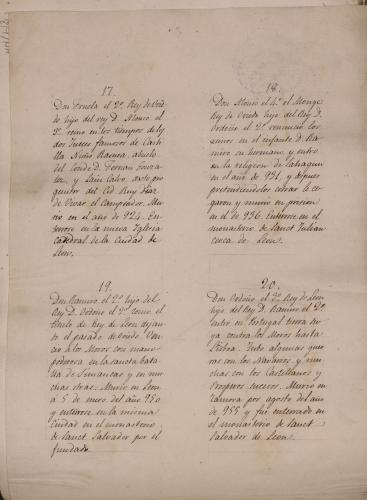 17.
Don Fruela el 2º Rey de Ovie
do hijo del rey D. Alonso el
3º reino en los tiempos de los
dos Jueces famosos de Casti
lla Nuño Rasura, abuelo
del Conde D. Fernan Gonza
lez, y Lain Calvo, sesto pro
genitor del Cid Ruy Diaz
de Vivar el Campeador. Mu
rio en el año de 924. En
terrose en la nueva Iglesia
Catedral de la Ciudad de
Leon.
18.
Don Alonso el 4º el Monge
Rey de Oviedo hijo del Rey D.
Ordoño el 2º renunció los
reinos en el infante D. Ra
miro su hermano, y entro
en la religion de Sahagun
en el año de 931, y despues
pretendiendolos cobrar le ce
garon y murio en prision
en el de 936. Enterrose en el
monasterio de Sanct Julian
cerca de Leon.
19.
Don Ramiro el 2º hijo del
Rey D. Ordoño el 2º tomó el
titulo de Rey de Leon dejan
do el pasado de Oviedo. Ven
cio a los Moros con mano
poderosa en la sancta bata
lla de Simancas y en mu
chas otras. Murio en Leon
á 5 de enero del año 950
y enterrose en la misma
Ciudad en el monasterio
de Sanct Salvador por el
fundado.
20.
Don Ordoño el 3º Rey de Leon
hijo del Rey D. Ramiro el 2º
entro en Portugal tierra su
ya contra los Moros hasta
Lisboa. Tubo algunas gue
rras con los Navarros y mu
chas con los Castellanos y
prosperos sucesos. Murio en
Zamora por agosto del año
de 955 y fue enterrado en
el monasterio de Sanct
Salvador de Leon.